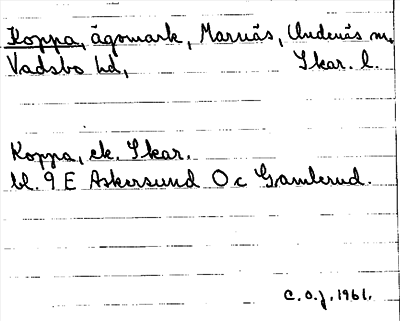 Koppa, ägomark, Marnäs, Undenäs m.
Vadsbo hd, Skar. l.
Koppa, ek. Skar.
bl. 9 E Askersund O c Gamlerud.
C. O. J. 1961.